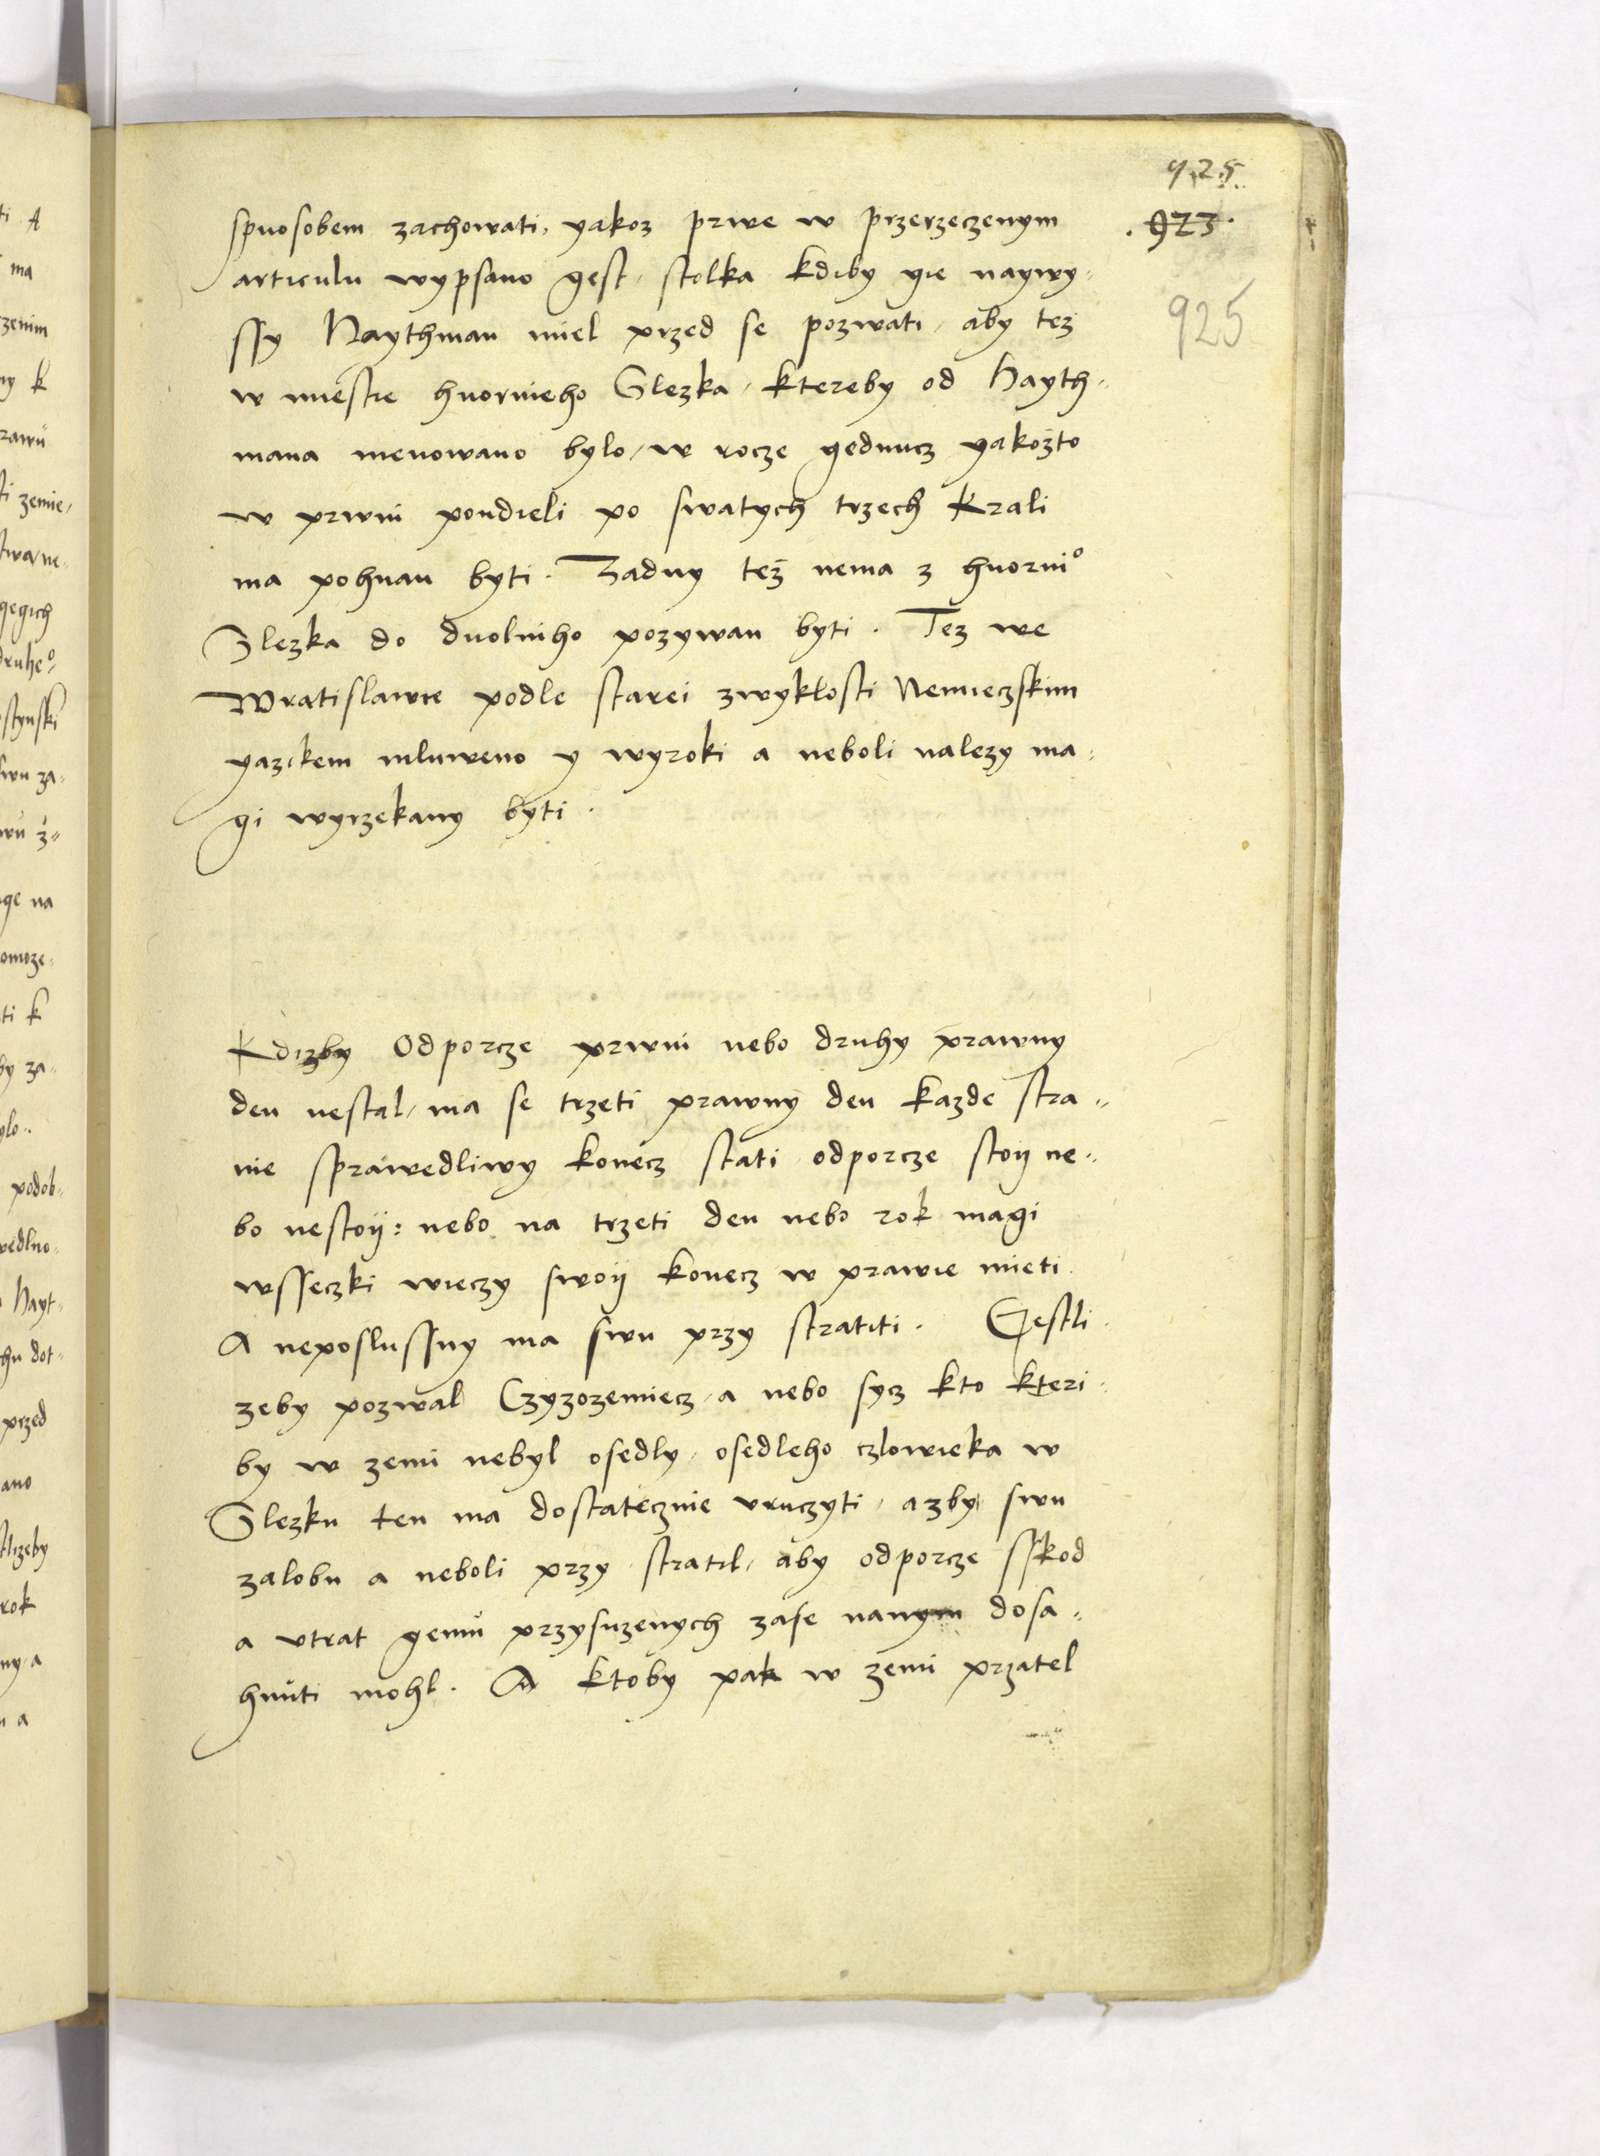 925
spuosobem zachowati, yakoz prwe w przerzeczenym
. 923 .
articulu wypsano gest, stolka kdiby gie naywy-
925
ssy Haythman miel przed se pozwati, aby tez
w miestie huornieho Slezka, ktereby od Hayth-
mana menowano bylo, w rocze gednucz yakožto
w prwni pondieli po swatych trzech Krali
ma pohnan byti. Zadny tež nema z huorni°
Slezka do duolniho pozywan byti. Tez we
Wratislawie podle starei zwyklosti Nemieczskim
yazikem mluweno y wyroki a neboli nalezy ma-
gi wyrzekany byti.
Kdizby Odporcze prwni nebo druhy prawny
den nestal, ma se trzeti prawny den kazde stra-
nie sprawedliwy konecz stati, odporcze stoy ne-
bo nestoij: nebo na trzeti den nebo rok magi
wsseczki wieczy swoij konecz w prawie mieti.
A neposlussny ma swu przy stratiti. Gestli
zeby pozwal Czyzozemiecz, a nebo sycz kto kteri-
by w zemi nebyl osedly, osedleho czlowieka w
Slezku ten ma dostatecznie vruczyti, azby swu
zalobu a neboli przy stratil, aby odporcze sskod
a vtrat gemu przysuzenych zase nanym dosa-
hnuti mohl. A ktoby pak w zemi przatel